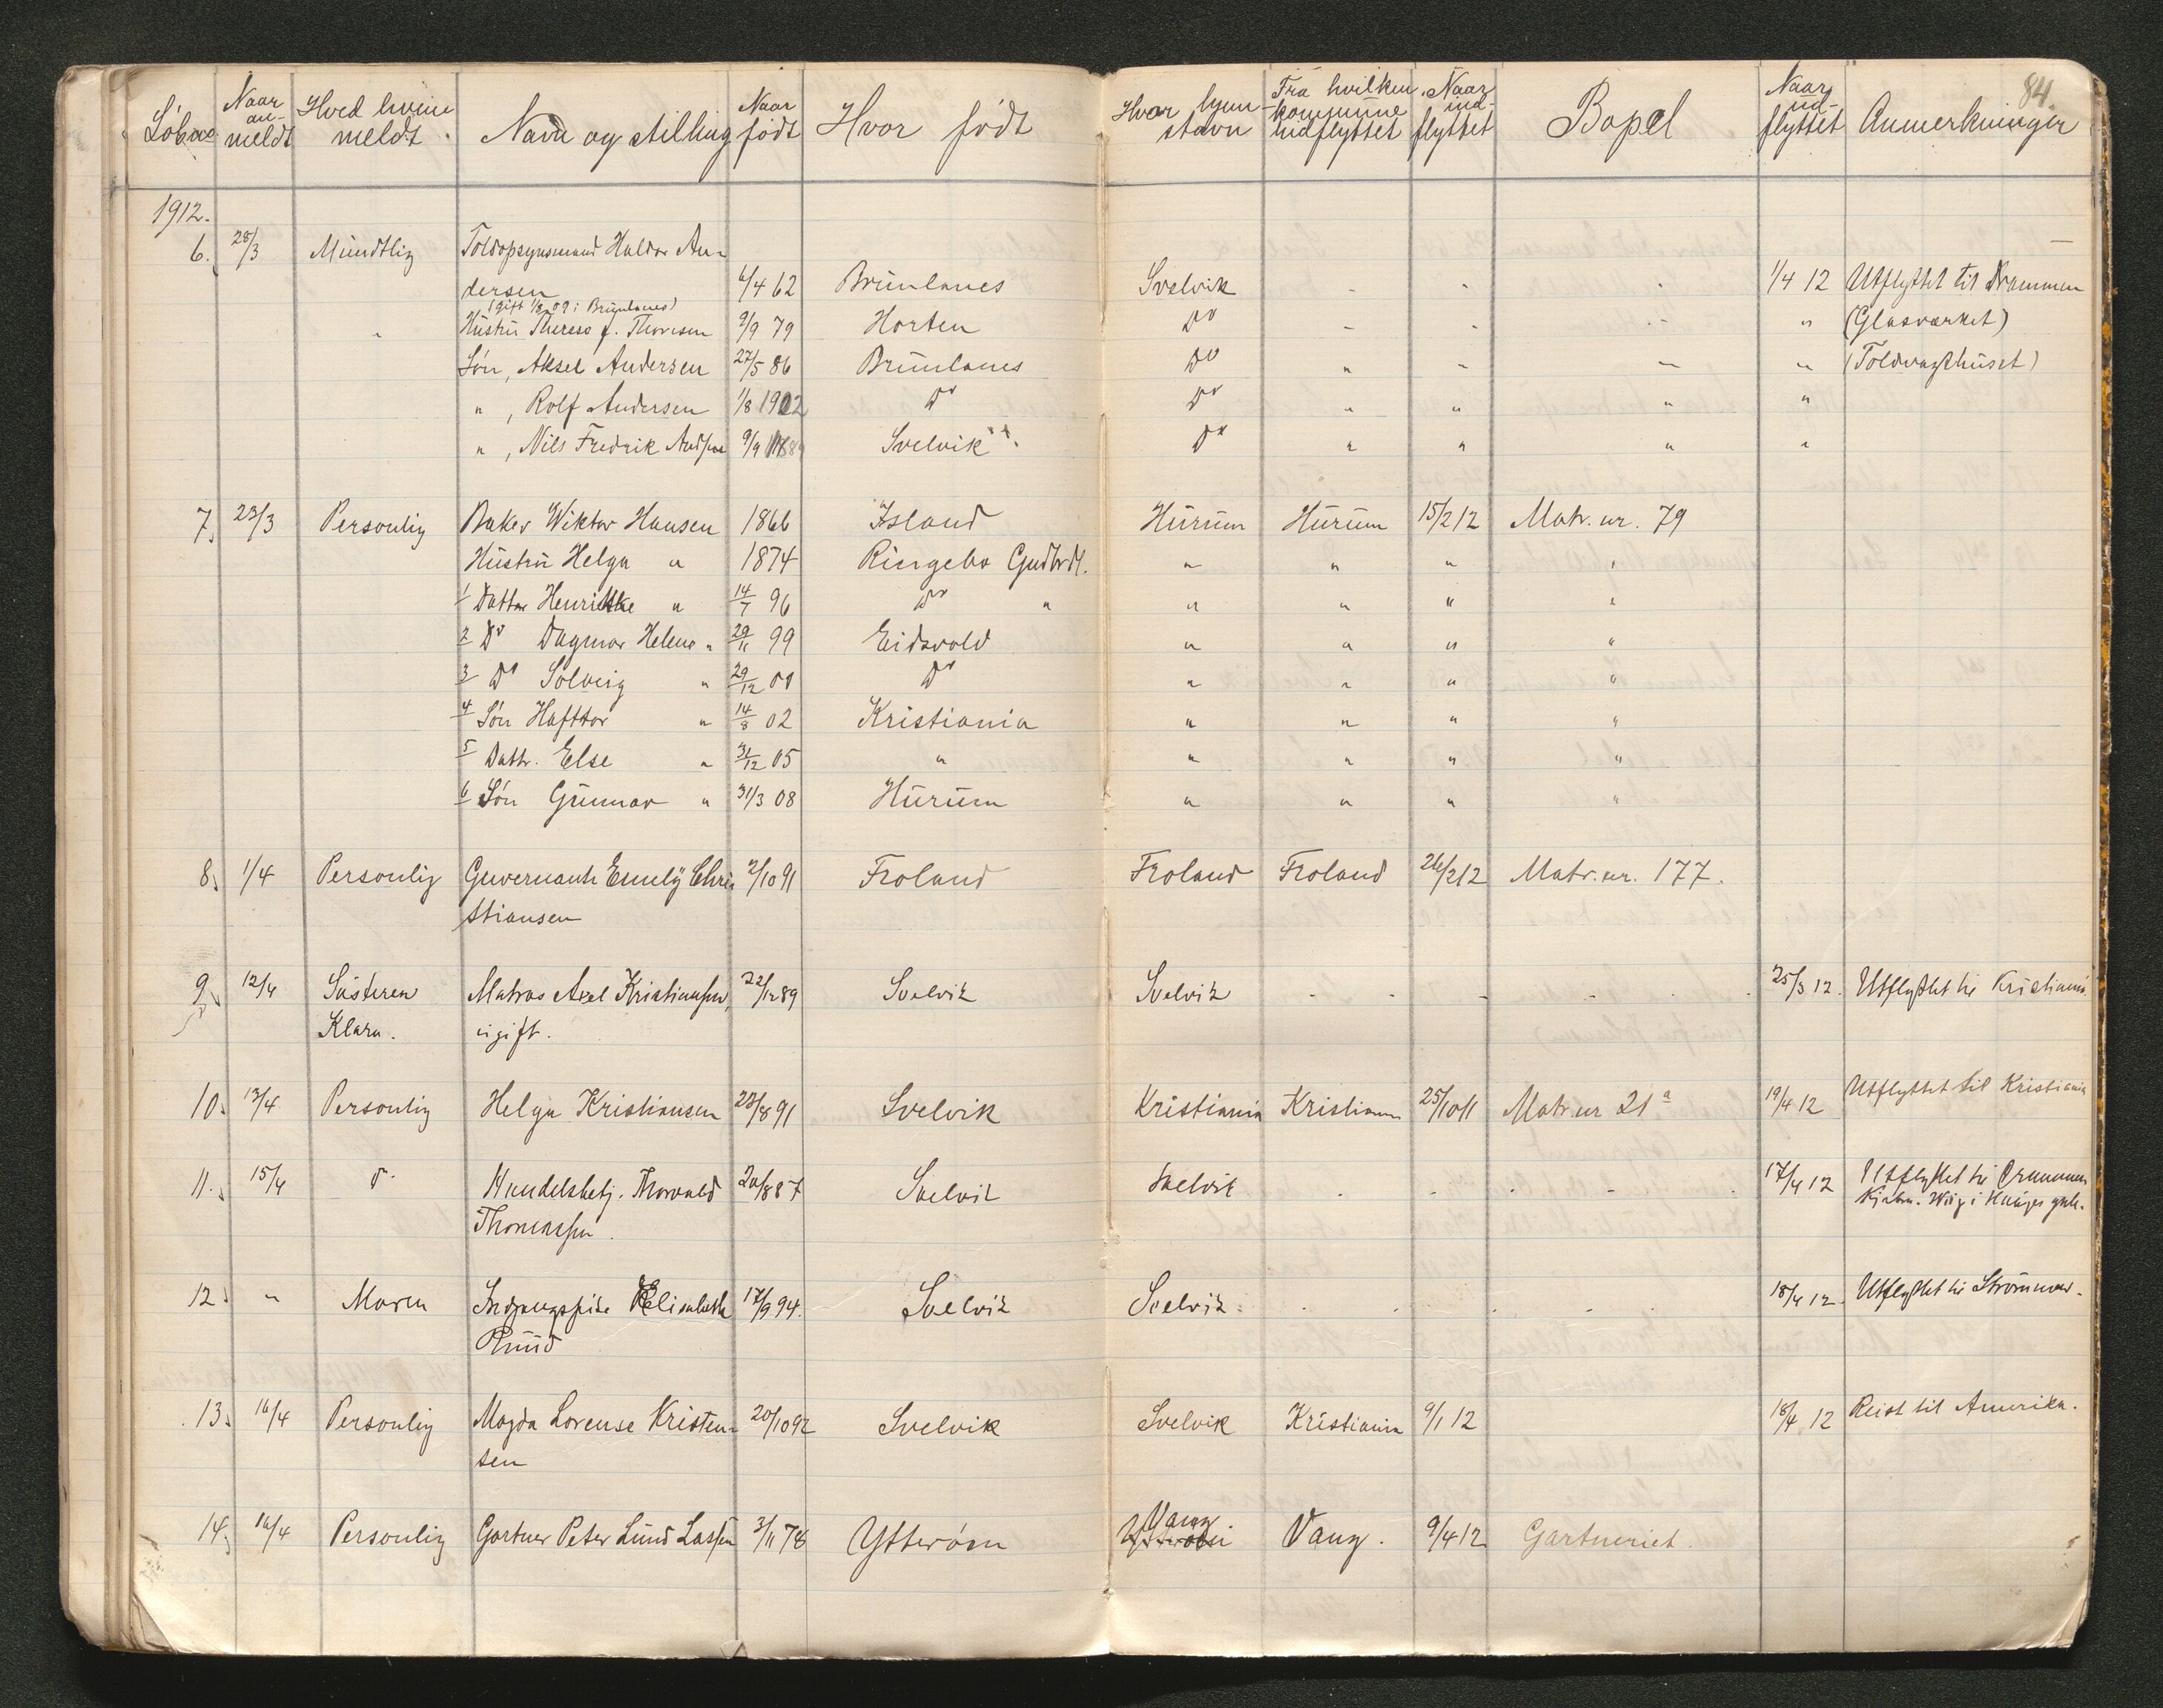 84.
Löbne Naar an-meldt Hved hvem meldt. Navn og stilling Naar födt Hvor födt Hvor hjem-stavn Fra hvilken kommune indflyttet Naar ind-flyttet Bopel Naar ud-flyttet Anmerkninger
1912.
6. 28/3 Mündtlig Toldopsynsmand Haldor An-
dersen 6/4 62 Brünlanes Svelvik - - - 1/4 12 Utflyttet til Drammen
(gift 1/8 09 i Brünlanes)
" Hüstrü Therese f. Thoresen 9/9 79 Horten Do - - - " (Glasværket)
Sön, Aksel Andersen 27/5 86 Brünlanes Do " - - " (Toldvagthüset)
" , Rolf Andersen 1/8 1902 Do Do " " " "
" , Nils Fredrik Andsen 9/9 Svelvik Do " " " "
7. 23/3 Personlig Baker Wiktor Hansen 1866 Island Hürüm Hürüm 15/2 12 Matr. nr. 79
Hüstrü Helga " 1874 Ringebo Gudbrdl. " " " "
1 Datter Henrikke " 14/7 96 Do " " " " "
2 Do Dagmar Helene " 29/11 99 Eidsvold " " " "
3 Do Solveig " 29/12 00 Do " " " "
4 Sön Hafttor " 14/8 02 Kristiania " " " "
5 Dattr. Else " 31/12 05 " " " " "
6 Sön Günnar " 31/3 08 Hürüm " " " "
8. 1/4 Personlig Guvernante Emily Chri 2/10 91 Froland Froland Froland 26/2 12 Matr. nr. 177.
stiansen
9. 12/4 Süsteren Matros Axel Kristiansen, 22/12 89 Svelvik Svelvik - - - - 25/3 12. Utflyttet til Kristiania.
Klara. ugift.
10. 13/4 Personlig Helga Kristiansen 23/8 91 Svelvik Kristiania Kristiania 25/10 11 Matr. nr 21 a 19/4 12 Utflyttet til Kristiania
11. 15/4 do Handelsbetj. Thorvald 20/8 87 Svelvik Svelvik - - - - 17/4 12 Utflyttet til Drammen
Thomassen. Kjøbm. Wiig i Hauges gate.
12. " Moren Elisabeth 17/9 94. Svelvik Svelvik - - - - 18/4 12. Utflyttet til Strömmen.
Rüüd
13. 16/4 Personlig Magda Lorense Kristen- 20/10 92 Svelvik Svelvik Kristiania 9/1 12 18/4 12 Reist til Amerika.
sen
14. 16/4 Personlig Gartner Peter Lünd Lassen 3/11 78 Ytterøen Vang Vang. 9/4 12 Gartneriet.